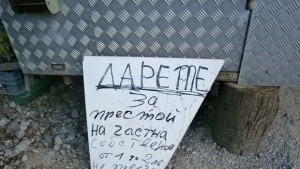 ДАРЕТЕ
за
престой
на частна
собственос
от 1 до 2 ле